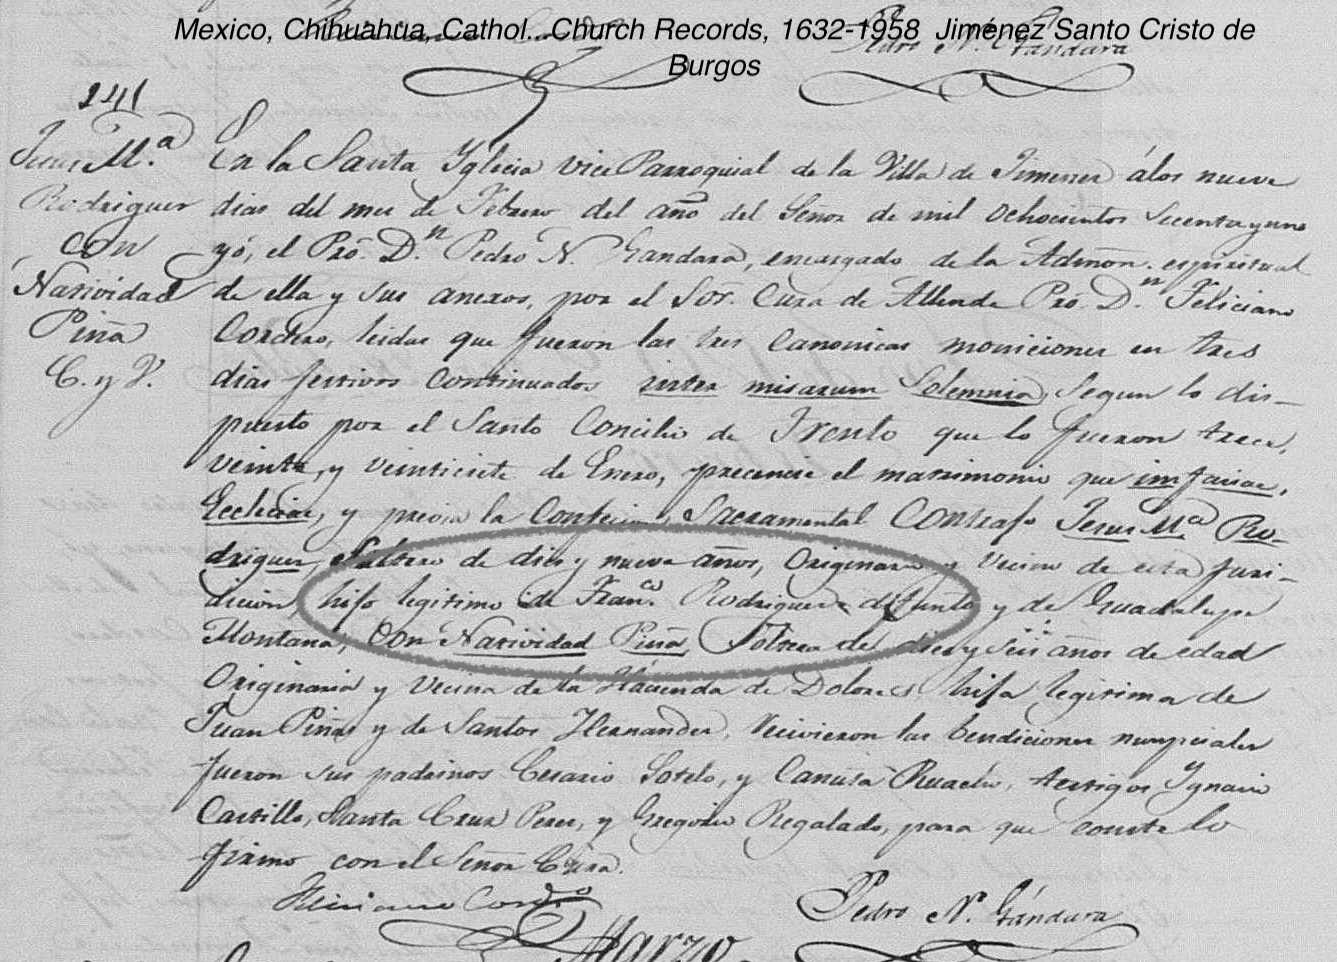 Mexico, Chihuahua, Cathol...Church Records, 1632-1958 Jiménez Santo Cristo de
Burgos
Pedro N. Gandara
141
Jesus M.ª
Rodriguez
con
Natividad
Piña
C. y V.
En la Santa Yglecia vice Parroquial de la Villa de Jimenez á los nueve
dias del mes de Febrero del año del Señor de mil ochocientos secenta y uno
yó, el Pro. D.n Pedro N. Gandara, encargado de la Admon. espiritual
de ella y sus anexos, por el Sor. Cura de Allende Pro. D.n Feliciano
Cordero, leidas que fueron las tres canonicas moniciones en tres
dias festivos continuados inter misarum Solemnia, segun lo dis-
puesto por el Santo Concilio de Trento que lo fueron trece,
veinte, y veintisiete de Enero, precencie el matrimonio que in faciae,
Ecleciae, y previa la Confecion Sacramental Contrajo Jesus M.ª Ro-
driguez, Soltero de dies y nueve años, Originario y Vecino de esta juri-
dicion, hijo legitimo de Fran.co Rodriguez difunto y de Guadalupe
Montana, con Natividad Piña, Soltera de dies y seis años de edad
Originaria y Vecina de la Hacienda de Dolores hija legitima de
Juan Piña y de Santos Hernandez. Recivieron las bendiciones nunpciales
fueron sus padrinos Cesario Sotelo, y Canuta Ruacho, testigos Ygnacio
Castillo, Santa Cruz Perez, y Gregorio Regalado, para que conste lo
firmo con el Señor Cura.
Feliciano Cordero
Pedro N. Gándara
Marzo